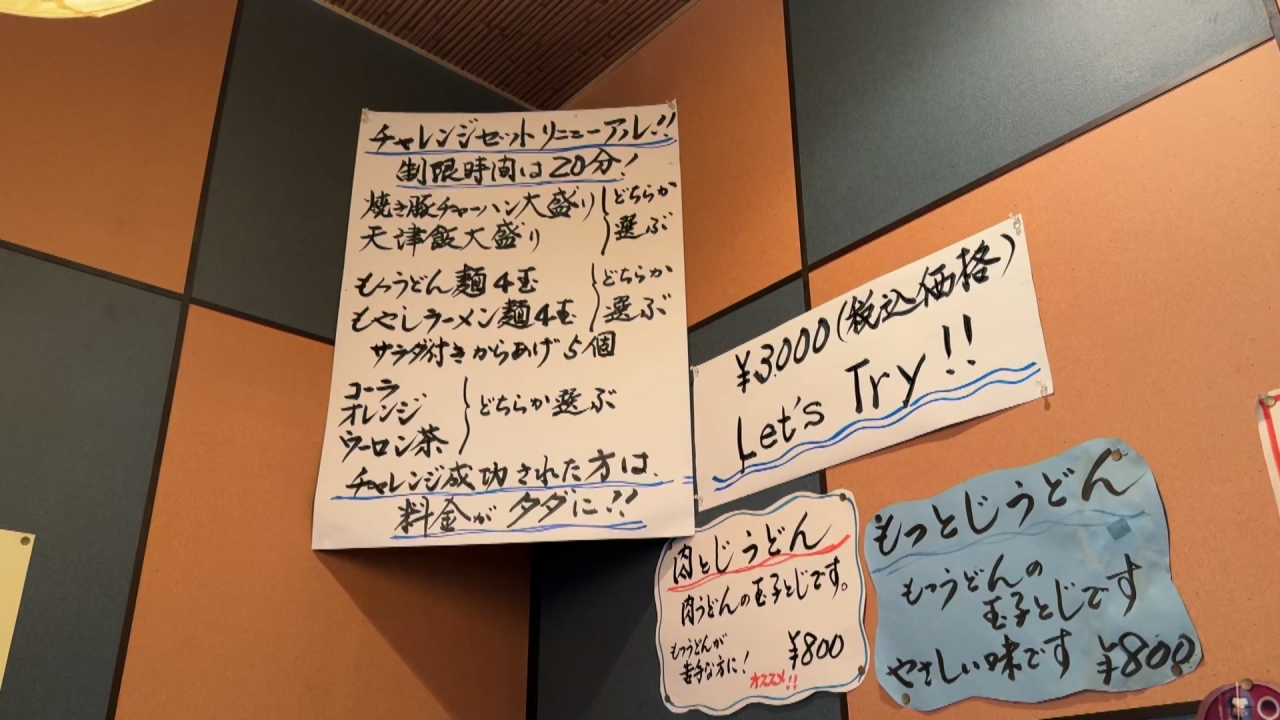 チャレンジセットリニューアル!!
制限時間は20分!
焼き豚チャーハン大盛り
天津飯大盛り
どちらか
選ぶ
もつうどん麺4玉
もやしラーメン麺4玉
どちらか
選ぶ
サラダ付きからあげ5個
コーラ
オレンジ
ウーロン茶
どちらか選ぶ
チャレンジ成功された方は、
料金がタダに!!
¥3000(税込価格)
Let's Try!!
肉とじうどん
肉うどんの玉子とじです。
もつうどんが
苦手な方に!
オススメ!!
¥800
もつとじうどん
もつうどんの
玉子とじです
やさしい味です ¥800